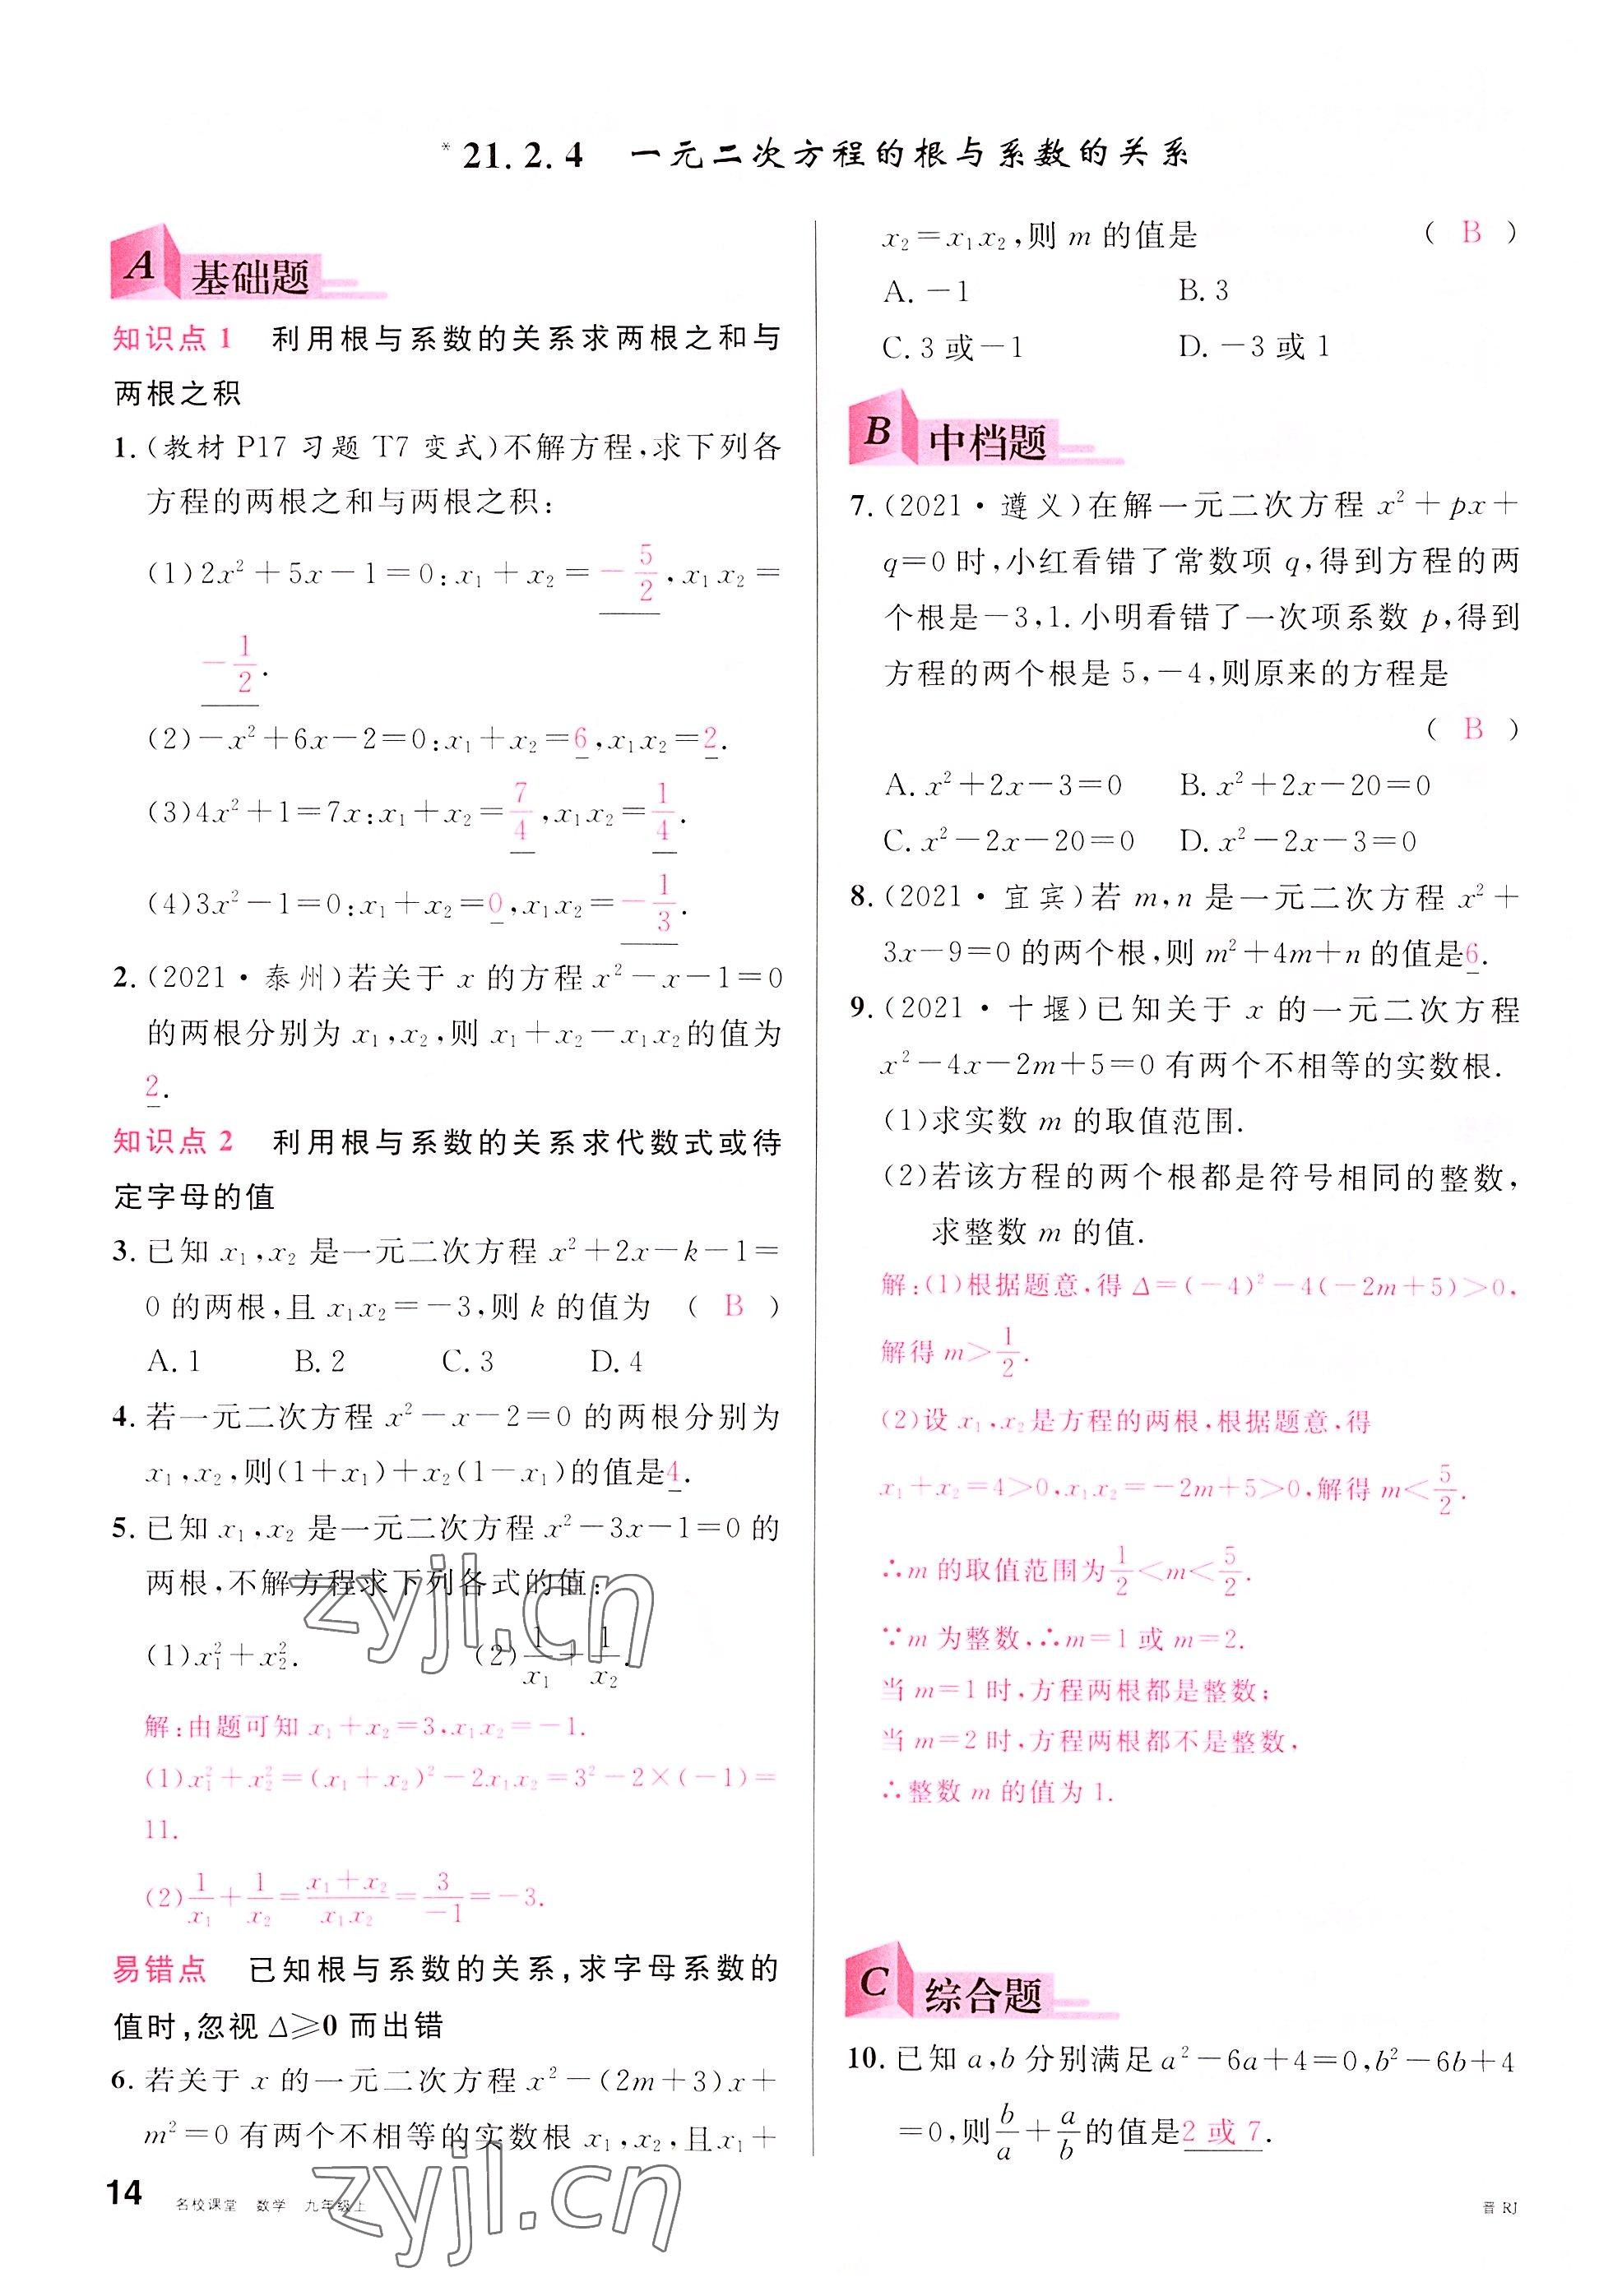 *21.2.4 一元二次方程的根与系数的关系
A 基础题
知识点1 利用根与系数的关系求两根之和与
两根之积
1.(教材 P17 习题 T7 变式)不解方程,求下列各
方程的两根之和与两根之积:
(1)2x²+5x-1=0:x₁+x₂=-5/2,x₁x₂=
-1/2.
(2)-x²+6x-2=0:x₁+x₂=6,x₁x₂=2.
(3)4x²+1=7x:x₁+x₂=7/4,x₁x₂=1/4.
(4)3x²-1=0:x₁+x₂=0,x₁x₂=-1/3.
2.(2021·泰州)若关于 x 的方程 x²-x-1=0
的两根分别为 x₁,x₂,则 x₁+x₂-x₁x₂的值为
2.
知识点2 利用根与系数的关系求代数式或待
定字母的值
3.已知 x₁,x₂ 是一元二次方程 x²+2x-k-1=
0 的两根,且 x₁x₂=-3,则 k 的值为 ( B )
A.1 B.2 C.3 D.4
4.若一元二次方程 x²-x-2=0 的两根分别为
x₁,x₂,则(1+x₁)+x₂(1-x₁)的值是4.
5.已知 x₁,x₂ 是一元二次方程 x²-3x-1=0 的
两根,不解方程求下列各式的值:
(1)x₁²+x₂². (2)1/x₁+1/x₂.
解:由题可知 x₁+x₂=3,x₁x₂=-1.
(1)x₁²+x₂²=(x₁+x₂)²-2x₁x₂=3²-2×(-1)=
11.
(2)1/x₁+1/x₂=(x₁+x₂)/(x₁x₂)=3/(-1)=-3.
易错点 已知根与系数的关系,求字母系数的
值时,忽视 Δ≥0 而出错
6.若关于 x 的一元二次方程 x²-(2m+3)x+
m²=0 有两个不相等的实数根 x₁,x₂,且 x₁+
x₂=x₁x₂,则 m 的值是 ( B )
A.-1 B.3
C.3 或-1 D.-3 或 1
B 中档题
7.(2021·遵义)在解一元二次方程 x²+px+
q=0 时,小红看错了常数项 q,得到方程的两
个根是-3,1.小明看错了一次项系数 p,得到
方程的两个根是 5,-4,则原来的方程是
( B )
A.x²+2x-3=0 B.x²+2x-20=0
C.x²-2x-20=0 D.x²-2x-3=0
8.(2021·宜宾)若 m,n 是一元二次方程 x²+
3x-9=0 的两个根,则 m²+4m+n 的值是6.
9.(2021·十堰)已知关于 x 的一元二次方程
x²-4x-2m+5=0 有两个不相等的实数根.
(1)求实数 m 的取值范围.
(2)若该方程的两个根都是符号相同的整数,
求整数 m 的值.
解:(1)根据题意,得 Δ=(-4)²-4(-2m+5)>0,
解得 m>1/2.
(2)设 x₁,x₂是方程的两根,根据题意,得
x₁+x₂=4>0,x₁x₂=-2m+5>0,解得 m<5/2.
∴m 的取值范围为1/2<m<5/2.
∵m 为整数,∴m=1 或 m=2.
当 m=1 时,方程两根都是整数;
当 m=2 时,方程两根都不是整数,
∴整数 m 的值为 1.
C 综合题
10.已知 a,b 分别满足 a²-6a+4=0,b²-6b+4
=0,则b/a+a/b的值是2 或 7.
14 名校课堂 数学 九年级上
晋 RJ
zyjl.cn
zyjl.cn